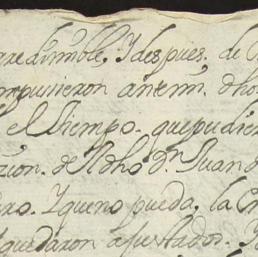 redimible, Y despues. de
impusieron antemi. dho
el tiempo. que pudier
de dho Dn Juan d
ro. Y que no pueda. la
quedaron ajustados. Y